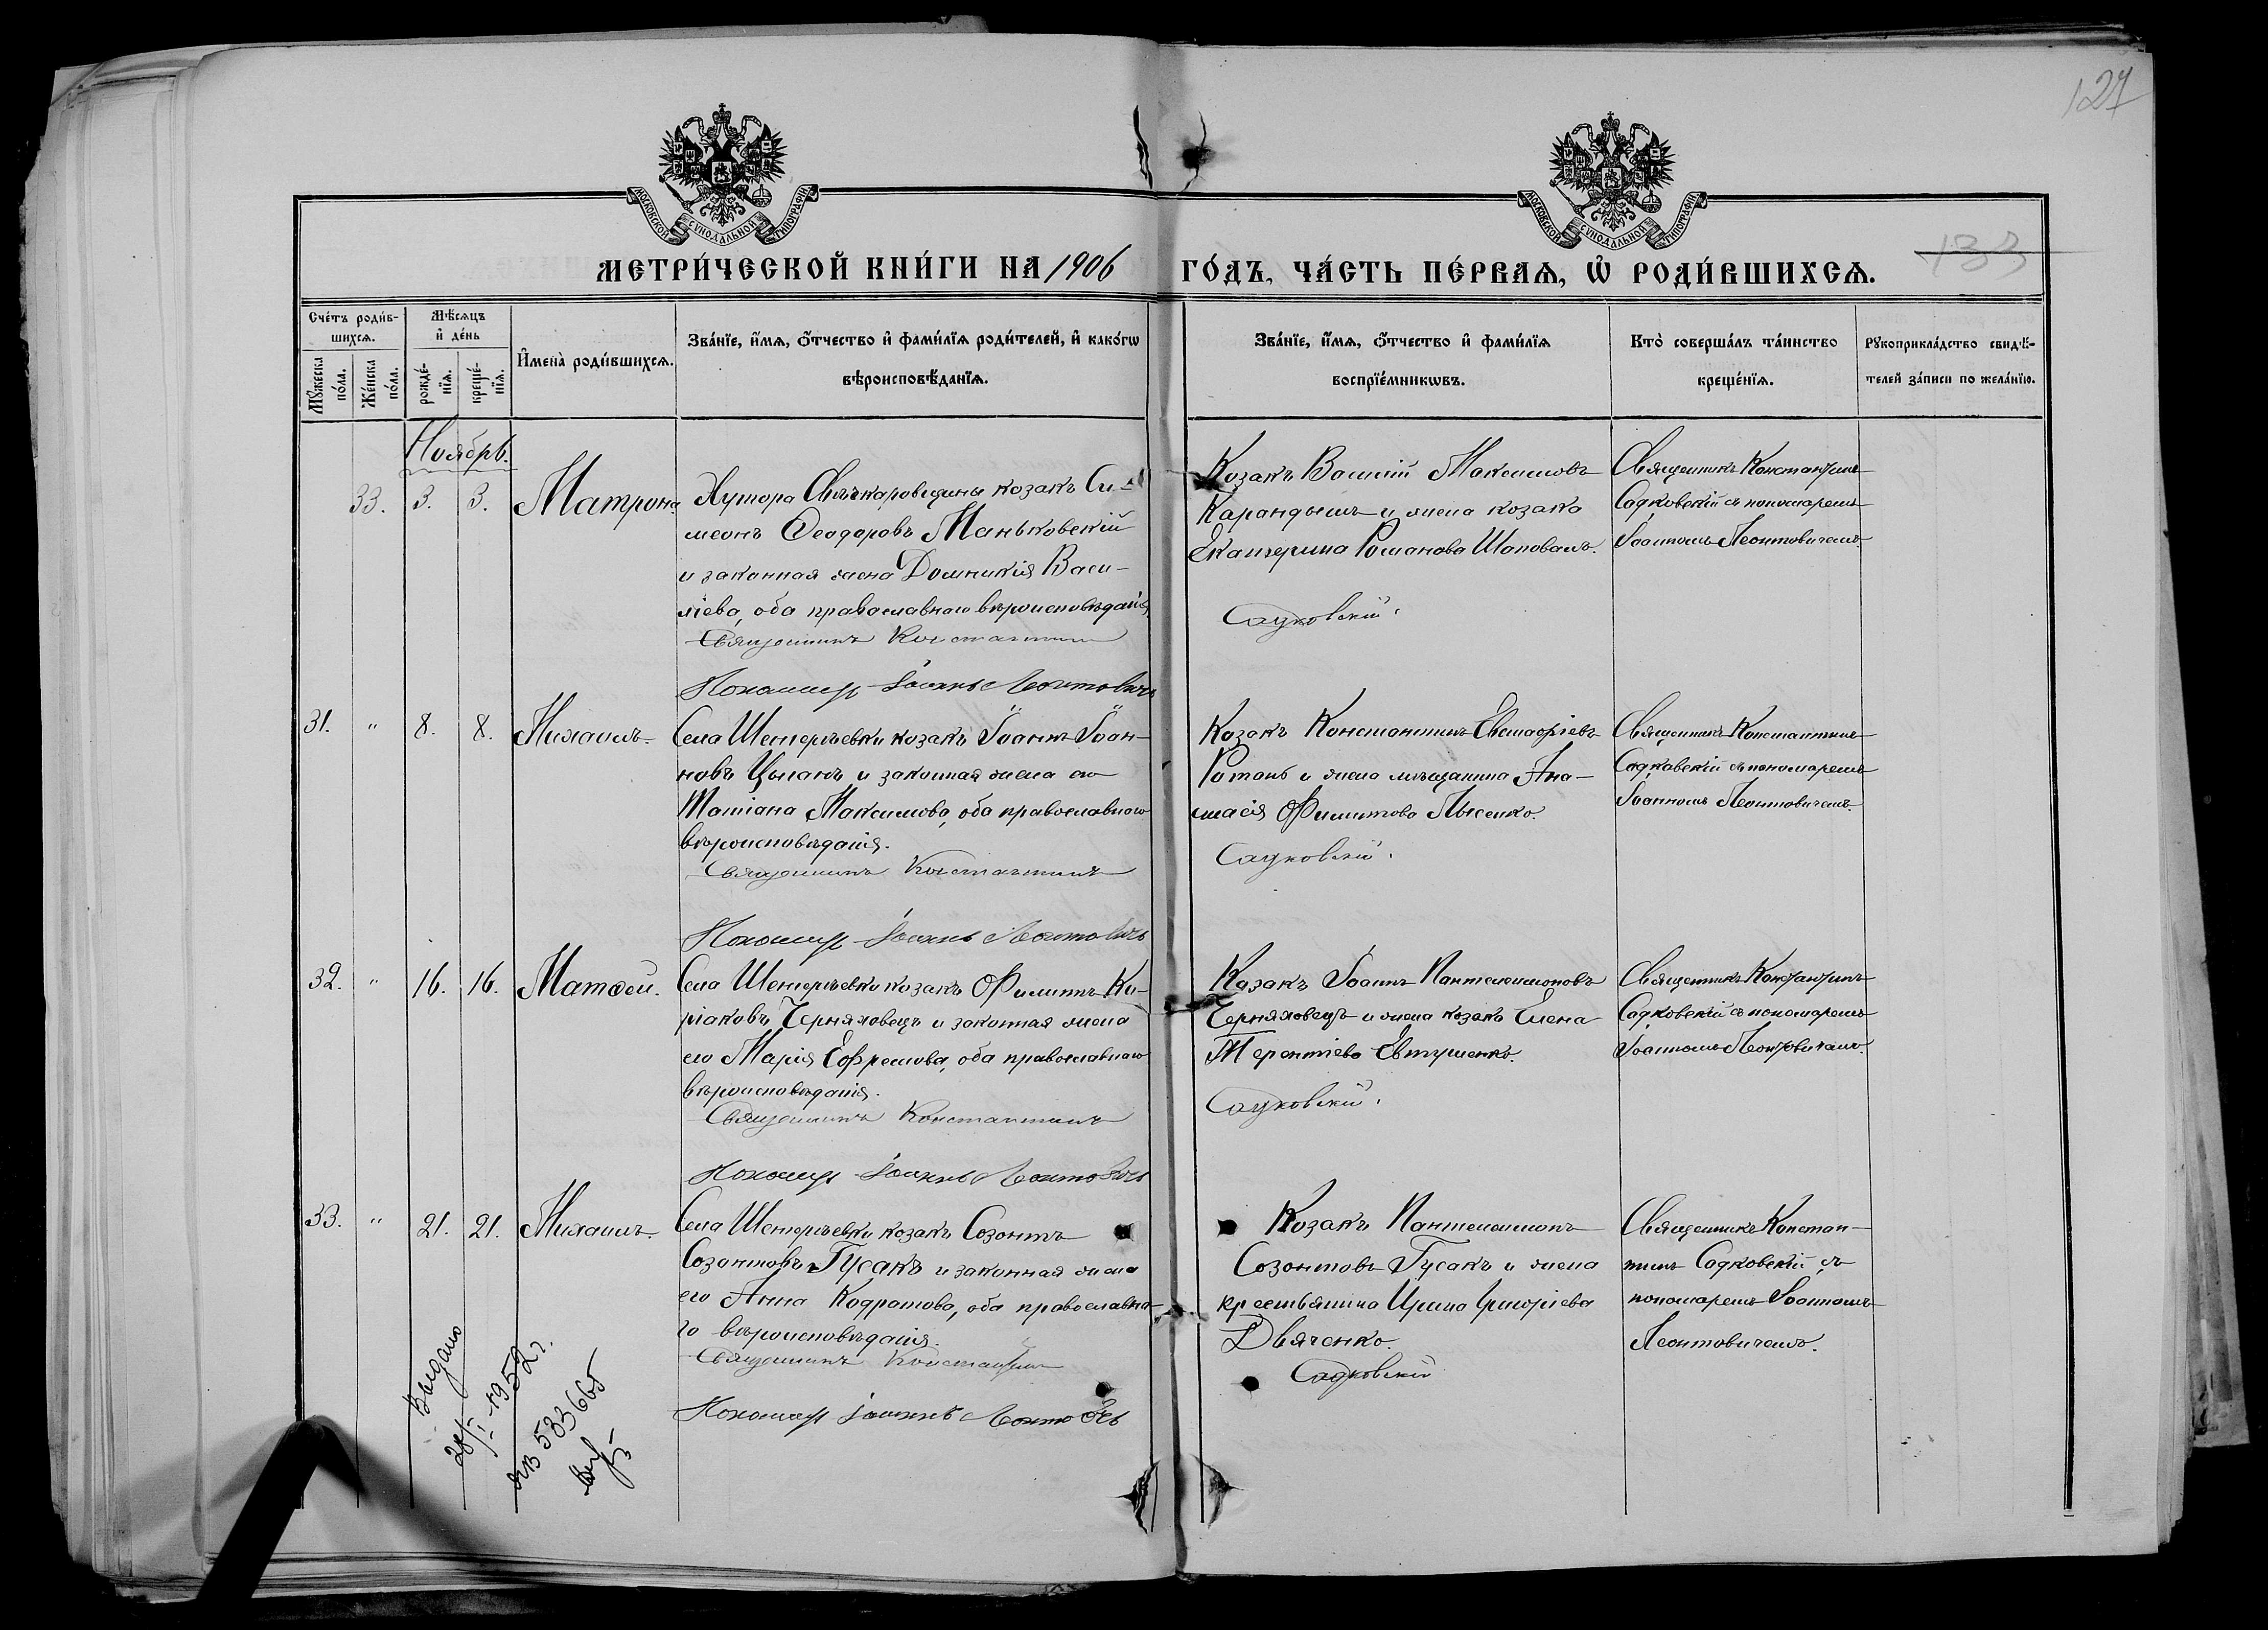 127
МОСКОВСКОЙ СѴНОДАЛЬНОЙ ТИПОГРАФІИ
МОСКОВСКОЙ СѴНОДАЛЬНОЙ ТИПОГРАФІИ
133
МЕТРИ́ЧЕСКОЙ КНИ́ГИ НА 1906 ГО́ДЪ, ЧА́СТЬ ПЕ́РВАѦ, Ѡ҆ РОДИ́ВШИХСѦ.
Сче́тъ роди́в-
шихсѧ.
Мꙋ́жеска по́ла.
Же́нска по́ла.
Мѣ́сѧцъ
и҆ де́нь
рожде́-
нїѧ.
креще́-
нїѧ.
И҆мена̀ роди́вшихсѧ.
Зва́нїе, и҆́мѧ, ѻ҆́тчество и҆ фами́лїѧ роди́телей, и҆ како́гѡ
вѣроисповѣ́данїѧ.
Зва́нїе, и҆́мѧ, ѻ҆́тчество и҆ фами́лїѧ
воспрїе́мникѡвъ.
Кто̀ соверша́лъ та́инство
креще́нїѧ.
Рꙋкоприкла́дство свидѣ́-
телей за́писи по жела́нїю.
Ноябрь.
33. 3. 3. Матрона.
Хутора козакъ Си-
меонъ Ѳеодоровъ Маньковскій
и законная жена Домникія Васи-
ліева, оба православнаго вѣроисповѣданія
Священникъ Константинъ
Пономарь Іоаннъ Леонтовичъ
Козакъ Василій Максимовъ
Карандышъ и жена козака
Екатерина Романова Шаповалъ.
Садковскій.
Священникъ Константинъ
Садковскій съ пономаремъ
Іоанномъ Леонтовичемъ.
31. " 8. 8. Михаилъ.
Села Шенгерѣевки козакъ Іоаннъ Іоан-
новъ Цыганъ и законная жена его
Татіана Максимова, оба православнаго
вѣроисповѣданія.
Священникъ Константинъ
Пономарь Іоаннъ Леонтовичъ
Козакъ Константинъ Евстафіевъ
Ротань и жена мѣщанина Ана-
стасія Филиппова Лысенко.
Садковскій.
Священникъ Константинъ
Садковскій съ пономаремъ
Іоанномъ Леонтовичемъ.
32. " 16. 16. Матѳей.
Села Шенгерѣевки козакъ Филиппъ Ки-
ріаковъ Черняховецъ и законная жена
его Марія Ефремова, оба православнаго
вѣроисповѣданія.
Священникъ Константинъ
Пономарь Іоаннъ Леонтовичъ
Козакъ Іоаннъ Пантелеимоновъ
Черняховецъ и жена козака Елена
Терентіева Евтушенко.
Садковскій.
Священникъ Константинъ
Садковскій съ пономаремъ
Іоанномъ Леонтовичемъ.
33. " 21. 21. Михаилъ.
Села Шенгерѣевки козакъ Созонтъ
Созонтовъ Гусакъ и законная жена
его Анна Кодратова, оба православна-
го вѣроисповѣданія.
Священникъ Константинъ
Пономарь Іоаннъ Леонтовичъ
Козакъ Пантелеимонъ
Созонтовъ Гусакъ и жена
крестьянина Ирина Григоріева
Дьяченко.
Садковскій
Священникъ Констан-
тинъ Садковскій съ
пономаремъ Іоанномъ
Леонтовичемъ.
Выдано
28/I-1952 г.
533665